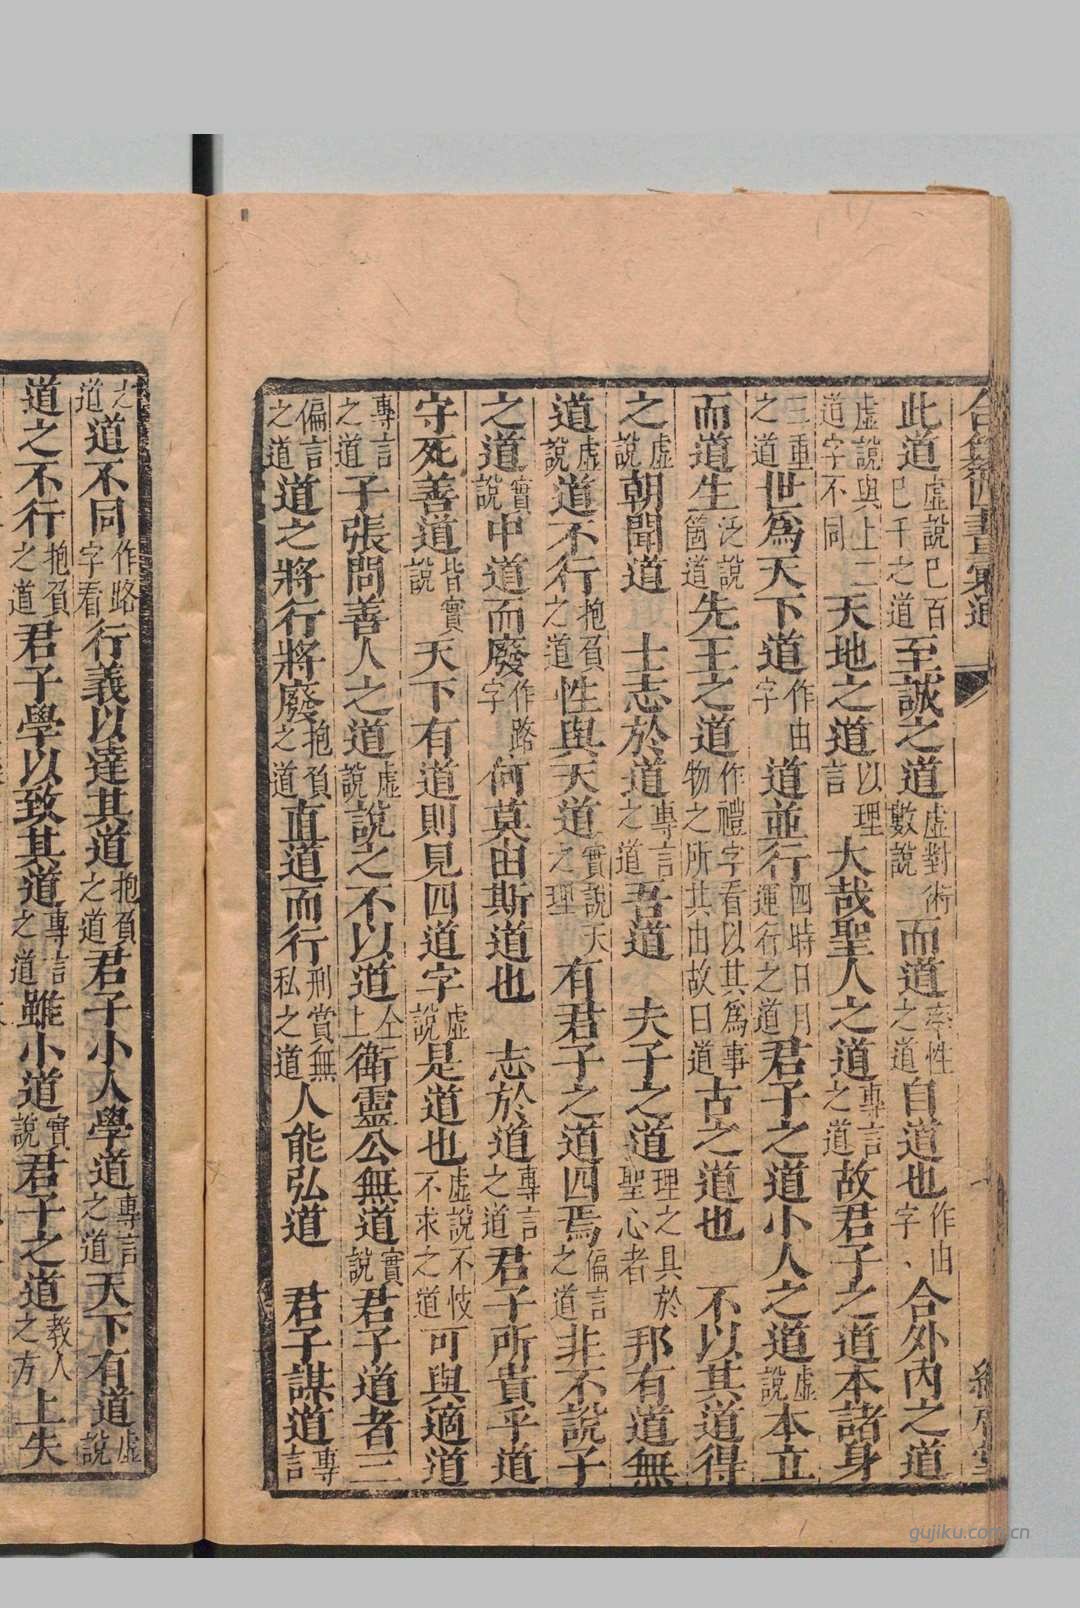 四書
此道虛說已百已千之道至誠之道虛對術數說而道率性之道自道也作由字、合外內之道
虛說與上二道字不同天地之道以理言大哉聖人之道專言之道故君子之道本諸身
三重之道世為天下道作由字道並行四時日月運行之道君子之道小人之道虛說本立
而道生泛說箇道先王之道作禮字看以其為事物之所共由故曰道古之道也 不以其道得
之虛說朝聞道 士志於道專言之道吾道 夫子之道理之具於聖心者邦有道無
道虛說道不行抱負之道性與天道實說天之理有君子之道四焉偏言之道非不說子
之道實說中道而廢作路字何莫由斯道也 志於道專言之道君子所貴乎道
守死善道皆實說天下有道則見四道字虛說是道也虛說不忮不求之道可與適道
專言之道子張問善人之道虛說說之不以道仝上衛靈公無道實說君子道者三
偏言之道道之將行將廢抱負之道直道而行刑賞無私之道人能弘道 君子謀道專言
之道道不同作路字看行義以達其道抱負之道君子小人學道專言之道天下有道虛說
道之不行抱負之道君子學以致其道專言之道雖小道實說君子之道教人之方上失
gujiku.com.cn